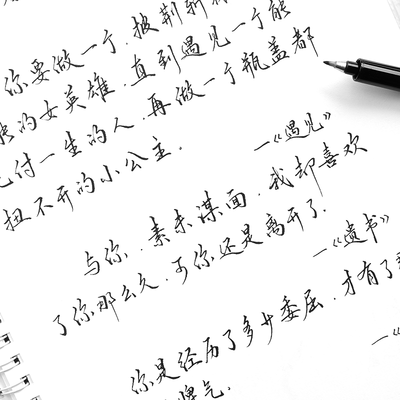 你要做一个.披荆斩
的女英雄.直到遇见一个能
付一生的人.再做一个瓶盖都
扭不开的小公主.
—《遇见》
与你.素未谋面.我却喜欢
了你那么久.可你还是离开了.
—《遗书》
你是经历了多少委屈.才有了
脾气.
—《